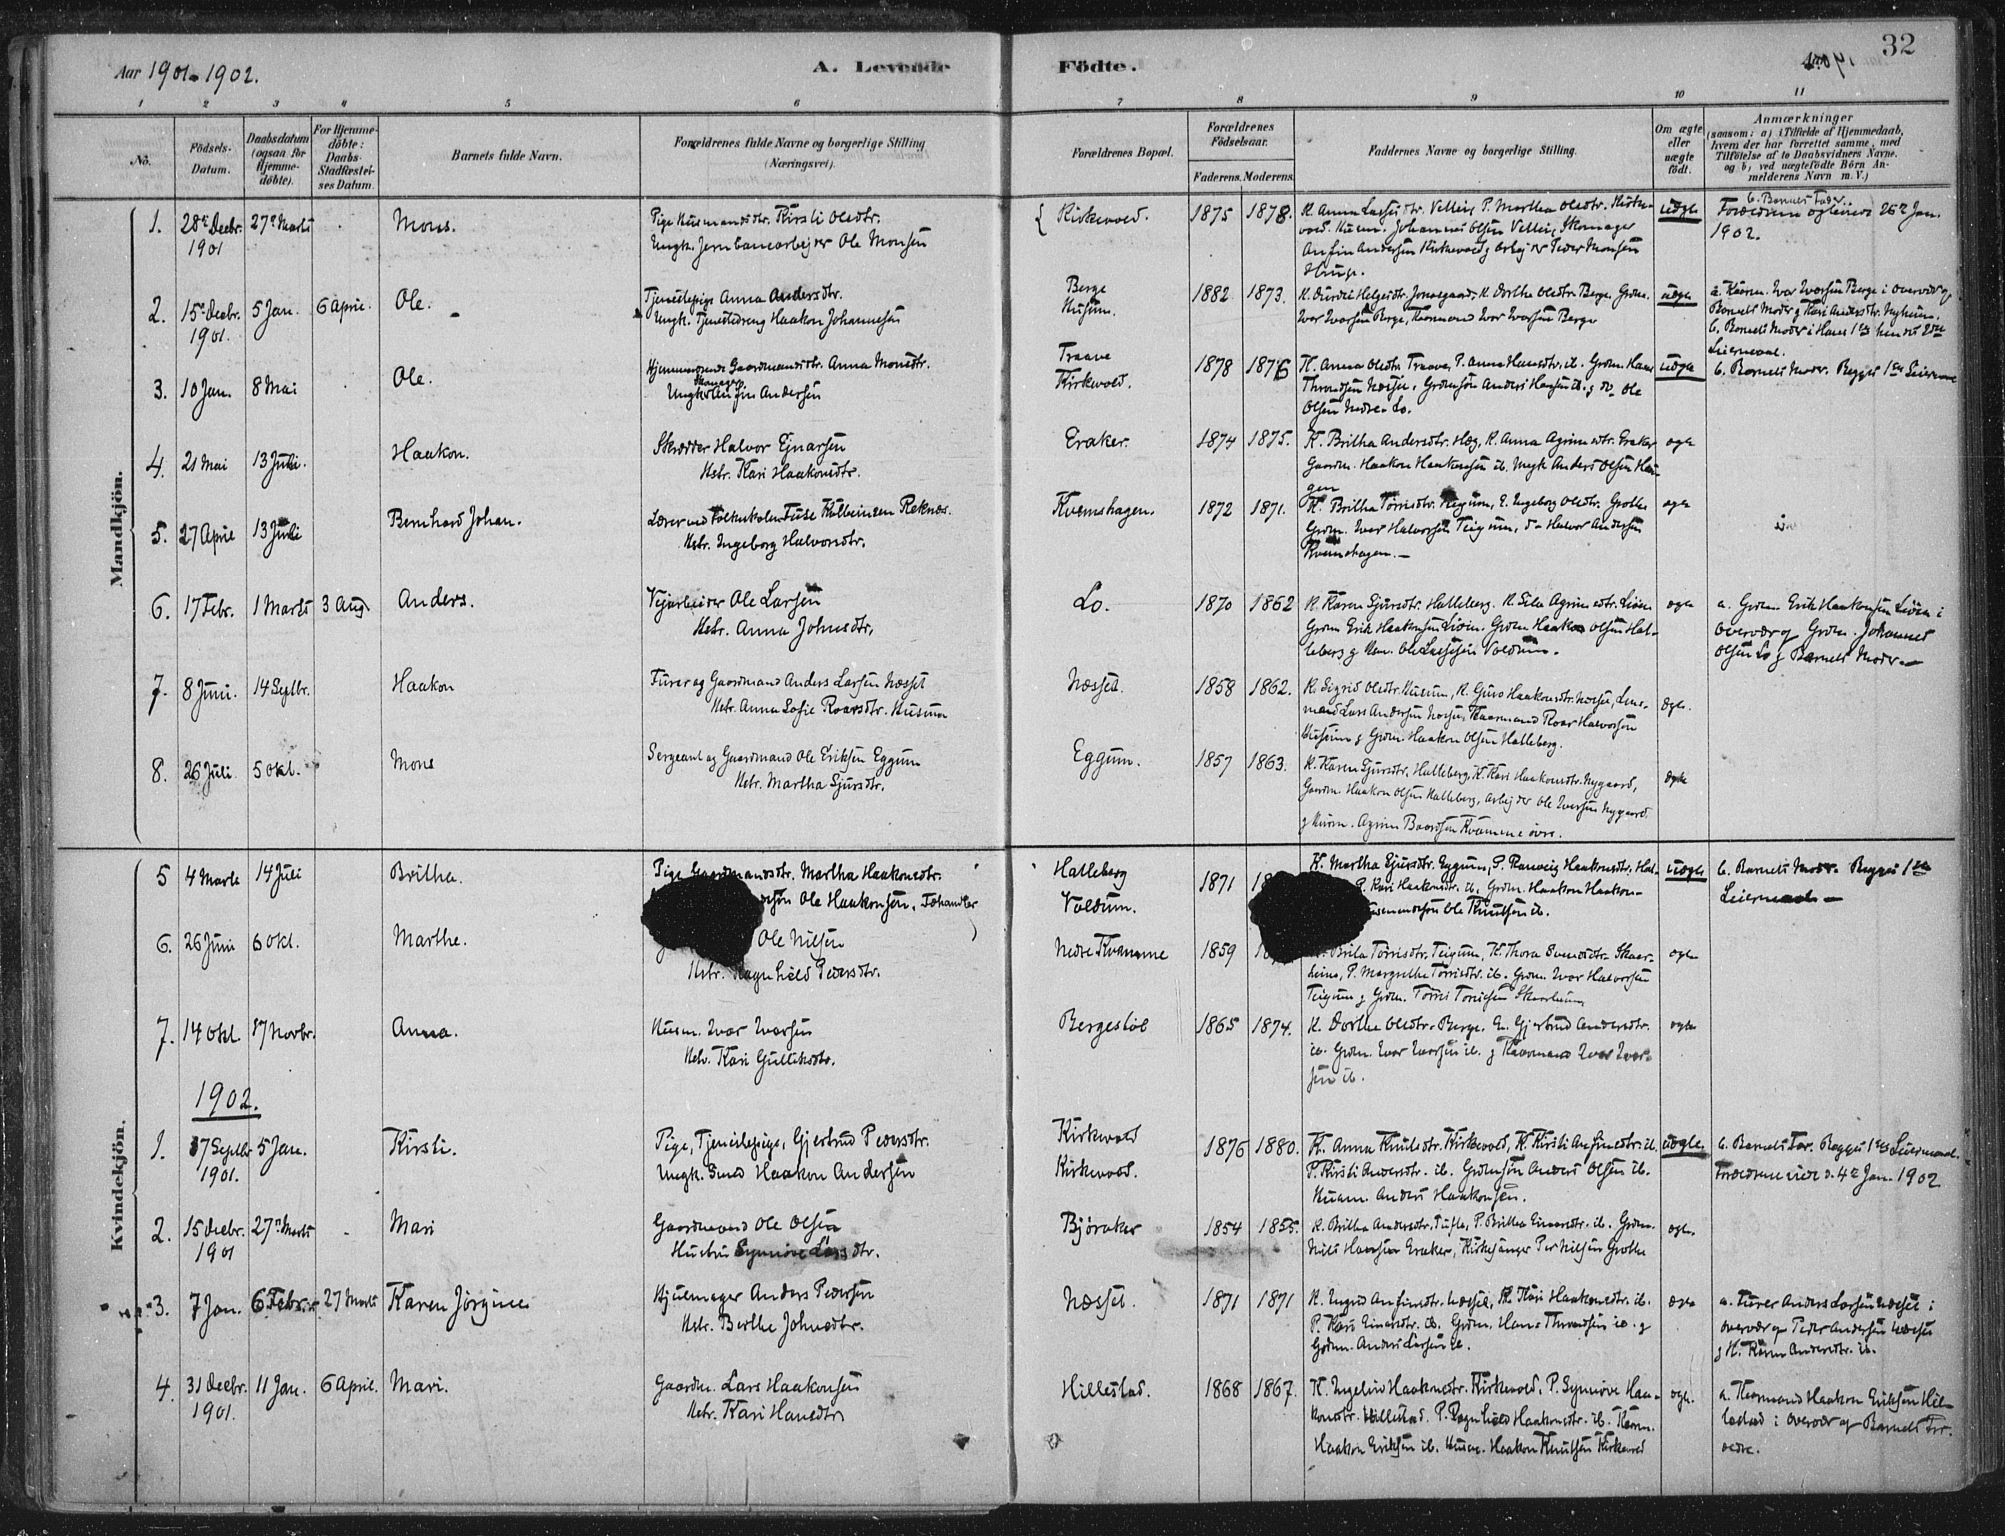 Aar 1901-1902.
A. Levende
Födte.
32
1 2 3 4 5 6 7 8 9 10 11
No.
Födsels-Datum.
Daabsdatum (ogsaa for Hjemme-döbte).
For Hjemme-döbte: Daabs-Stadfæstel-ses Datum.
Barnets fulde Navn.
Forældrenes fulde Navne og borgerlige Stilling (Næringsvei).
Forældrenes Bopæl.
Forældrenes Födselsaar.
Faderens. Moderens.
Faddernes Navne og borgerlige Stilling.
Om ægte eller uægte födt.
Anmærkninger (saasom: a) i Tilfælde af Hjemmedaab, hvem der har forrettet samme, med Tilföielse af to Daabsvidners Navne, og b) ved uægtefödte Börn An-melderens Navn m. V.)
Mandkjön.
1. 28de Decbr. 1901 27de Marts Mons.
Pige Husmandsdtr. Kirsti Olsdtr.
Ungk. Jernbanearbejder Ole Monsen
Kirkevold. 1875 1878.
K. Anna Larsdtr. Vellein, P. Martha Olsdtr. Kirke-
vold. Husm. Johannes Olsen Vellein, Skomager
Anfin Andersen Kirkevold, Arbejder Peder Monsen
uægte
b. Barnets Fader.
26de Jan.
1902.
2. 15de Decbr. 1901. 5 Jan. 6 April. Ole.
Tjenestepige Anna Andersdtr.
Ungk. Tjenestedreng Haakon Johannesen
Berge
Husum. 1882 1873.
K. Dorthe Olsdtr. Berge, Grdm.
Iver Iversen Berge, Kaarmand Iver Iversen Berge
uægte
a. Kaarm. Iver Iversen Berge i Overvær af
Barnets Moder og Kari Andersdtr. Nyheim.
b. Barnets Moder. Hans 1ste hendes 2det
Leiermaal.
3. 10 Jan. 8 Mai Ole.
Hjemmeværende Gaardmandsdtr. Anna Monsdtr.
Skomager
Ungk. Anfin Andersen
Traave
Kirkevold. 1878 1876
K. Anna Olsdtr. Traave, P. Anna Hansdtr. ib. Grdm. Hans
Throndsen Næsset, Grdmsøn Anders Hansen ib. og do Ole
Olsen Nedre-Lo.
uægte
b. Barnets Moder. Begges 1ste Leiermaal
4. 21 Mai 13 Juli. Haakon.
Skrædder Halvor Ejnarsen
Hstr. Kari Haakonsdtr.
Eraker. 1874 1875.
K. Britha Andersdtr. Hæg, K. Anna Agrimsdtr. Eraker
Gaardm. Haakon Haakonsen ib. Ungk. Anders Olsen Hau-
gen
ægte
5. 27 April 13 Juli Bernhard Johan.
Lærer ved Folkeskolen Tuse Kolbeinsen Reknes.
Hstr. Ingeborg Halvorsdtr.
Kvernshagen. 1872 1871.
K. Britha Torrisdtr. Teigum, P. Ingeborg Olsdtr. Grothe
Grdm. Iver Halvorsen Teigum, do Halvor Andersen
Kvernshagen.
ægte
6. 17 Febr. 1 Marts 3 Aug. Anders.
Vejarbeider Ole Larsen
Hstr. Anna Johnsdtr.
Lo. 1870 1862
K. Karen Sjursdtr. Halleberg, K. Sila Agrimsdtr. Liøen
Grdm Erik Haakonsen Liøen. Grdm Haakon Olsen Hal-
leberg og Voldum.
ægte
a. Grdm. Erik Haakonsen Liøen i
Overvær af Grdm. Johannes
Olsen Lo og Barnets Moder
7. 8 Juni. 14 Septbr. Haakon
Furer og Gaardmand Anders Larsen Næsset
Hstr. Anna Sofie Roarsdtr. Husum
Næsset. 1858 1862.
K. Sigrid Olsdtr. Husum, K. Guro Haakonsdtr. Næsset, Lens-
mand Lars Andersen Næsset, Kaarmand Roar Halvorsen
Husum og Grdm. Haakon Olsen Halleberg.
ægte.
8. 26 Juli 5 Okt. Mons
Sergeant og Gaardmand Ole Eriksen Eggum
Hstr. Martha Sjursdtr.
Eggum. 1857 1863.
K. Karen Sjursdtr. Halleberg, K. Kari Haakonsdtr. Nygaard,
Gaardm. Haakon Olsen Halleberg, Arbejder Ole Iversen Nygaard
og Husm. Agrim Baardsen Kvamme øvre.
ægte
Kvindekjön.
5 4 Marts 14 Juli Britha.
Pige Gaardmandsdtr. Martha Haakonsdtr.
Ole Haakonsen, Fehandler
Halleberg
Voldum. 1871
K. Martha Sjursdtr. Eggum, P. Ranveig Haakonsdtr. Hal-
P. Kari Haakonsdtr. ib. Grdm. Haakon Haakon-
Ole Knutsen ib.
uægte
b. Barnets Moder. Begges 1ste
Leiermaal
6. 26 Juni 6 Okt. Marthe.
Ole Nilsen
Hstr. Ragnhild Pedersdtr.
Nedre Kvamme 1859
Brita Torrisdtr. Teigum, K. Thora Svensdtr. Skaar-
heim, P. Margrethe Torrisdtr. ib. Grdm. Iver Halvorsen
Teigum og Grdm. Torris Torrissen Skarheim
ægte
7. 14 Okt. 17 Novbr. Anna.
Husm. Iver Iversen
Hstr. Kari Gulleiksdtr.
Bergestøl 1865 1874.
K. Dorthe Olsdtr. Berge. P. Gjertrud Andersdtr.
ib. Grdm. Iver Iversen ib. og Kaarmand Iver Iver-
sen ib.
ægte
1902.
1. 17 Septbr 1901. 5 Jan. Kirsti.
Pige, Tjenestepige, Gjertrud Pedersdtr.
Ungk. Smed Haakon Andersen
Kirkevold
Kirkevold. 1876 1880.
K. Anna Knutsdtr. Kirkevold, K. Kirsti Anfinsdtr. ib.
P. Kirsti Andersdtr. ib. Grdmsøn Anders Olsen ib.
Husm. Anders Haakonsen.
uægte.
b. Barnets Far. Begges 1ste Leiermaal.
Forældrene viede d. 4de Jan. 1902
2. 15 Decbr. 1901 27de Marts Mari
Gaardmand Ole Olsen
Hustru Synnøve Larsdtr.
Bjøraker 1854 1855.
K. Britha Andersdtr. Tufte, P. Britha Einarsdtr. ib. Grdm.
Nils Hansen Eraker, Kirkesanger Per Nilsen Grothe
ægte.
3. 7 Jan. 6 Febr. 27 Marts Karen Jørgine
Hjulmager Anders Pedersen
Hstr. Berthe Johnsdtr.
Næsset. 1871 1871
K. Ingrid Anfinsdtr. Næsset, K. Kari Haakonsdtr. ib.
P. Kari Einarsdtr. ib. Grdm. Hans Throndsen ib. og
Grdm. Anders Larsen ib.
ægte
a. Furer Anders Larsen Næsset i
Overvær af Peder Andersen Næsset
og K. Karen Andersdtr. ib.
4. 31 Decbr. 1901. 11 Jan. 6 April. Mari.
Gaardm. Lars Haakonsen
Hstr. Kari Hansdtr
Hillestad. 1868 1867.
K. Ingeleiv Haakonsdtr. Kirkevold, P. Synnøve Haa-
konsdtr. Hillestad, P. Ragnhild Haakonsdtr. ib. Kaarm.
Haakon Eriksen ib. Husm. Haakon Knutsen Kirkevold
ægte.
a. Kaarmand Haakon Eriksen Hil-
lestad i Overvær af Barnets For-
ældre.